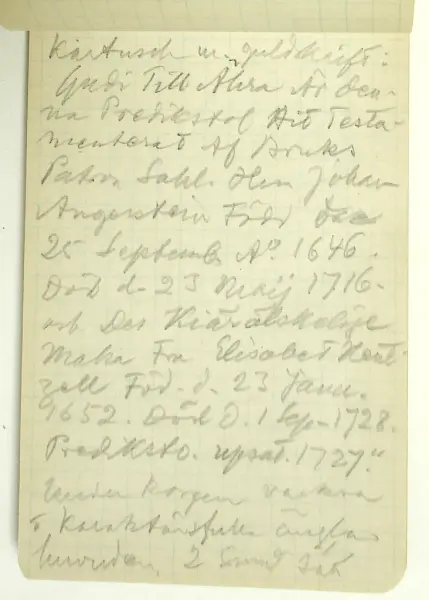 Kartusch m. guldskrift:
Gudi Till Ähra Är den-
na Predikstol Hit Testa-
menterat Af Bruks
Patron Sahl. Herr Johan
Angerstein Född den
25 Septemb. A° 1646.
Död d. 23 Maij 1716.
och Des Kiärälskelige
Maka Fru Elisabet Hent-
zell Föd. d. 23 Janu.
1652. Död D. 1 Sep. 1728.
Prediksto. upsat. 1727."
Under korgen vackra
karaktärsfulla ängla
huvuden. 2